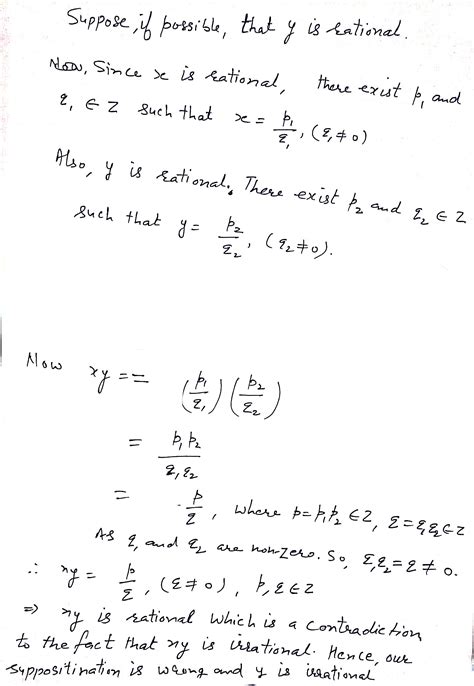 Suppose, if possible, that y is rational.
Now, Since x is rational, there exist p₁ and
q₁ ∈ Z such that x = p₁/q₁, (q₁ ≠ 0)
Also, y is rational. There exist p₂ and q₂ ∈ Z
such that y = p₂/q₂, (q₂ ≠ 0).
Now xy == (p₁/q₁) (p₂/q₂)
= p₁p₂/q₁q₂
= p/q, where p = p₁p₂ ∈ Z, q = q₁q₂ ∈ Z
As q₁ and q₂ are non-zero. So, q₁q₂ = q ≠ 0.
∴ xy = p/q, (q ≠ 0), p, q ∈ Z
⇒ xy is rational which is a contradiction
to the fact that xy is irrational. Hence, our
suppositination is wrong and y is irrational